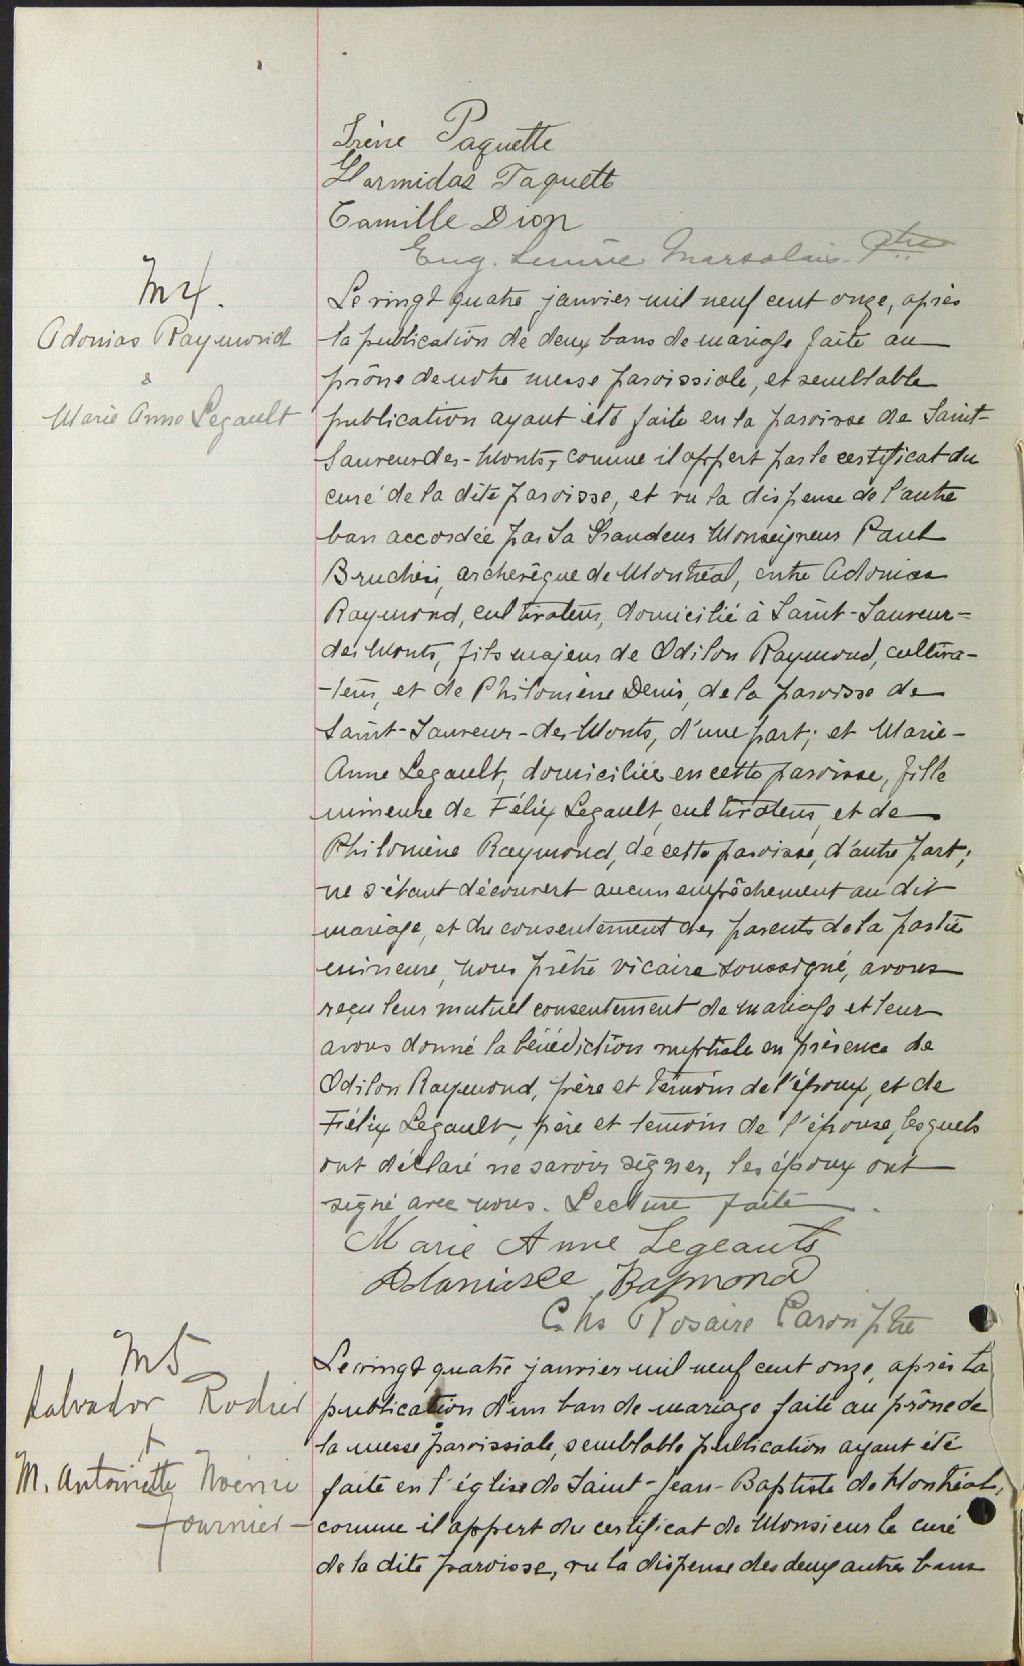 Irène Paquette
Harmidas Paquette
Camille Dion
Eug. Marsolais Ptre
M 4.
Adonias Raymond
&
Marie Anne Legault
Le vingt quatre janvier mil neuf cent onze, après
la publication de deux bans de mariage faite au
prône de notre messe paroissiale, et semblable
publication ayant été faite en la paroisse de Saint-
Sauveur des-Monts, comme il appert par le certificat du
curé de la dite paroisse, et vu la dispense de l'autre
ban accordée par Sa Grandeur Monseigneur Paul
Bruchési, archevêque de Montréal, entre Adonias
Raymond, cultivateur, domicilié à Saint-Sauveur-
des Monts, fils majeur de Odilon Raymond, cultiva-
-teur, et de Philomène Denis, de la paroisse de
Saint-Sauveur-des-Monts, d'une part; et Marie-
Anne Legault, domiciliée en cette paroisse, fille
mineure de Félix Legault, cultivateur, et de
Philomène Raymond, de cette paroisse, d'autre part;
ne s'étant découvert aucun empêchement au dit
mariage, et du consentement des parents de la partie
mineure, nous prêtre vicaire soussigné, avons
reçu leur mutuel consentement de mariage et leur
avons donné la bénédiction nuptiale en présence de
Odilon Raymond, père et témoin de l'époux, et de
Félix Legault, père et témoin de l'épouse, lesquels
ont déclaré ne savoir signer, les époux ont
signé avec nous. Lecture faite.
Marie Anne Legeault
Raymond
Chs Rosaire Caron ptre
M 5
Salvador Rodier
+
M. Antoinette Noémie
Fournier
Le vingt quatre janvier mil neuf cent onze, après la
publication d'un ban de mariage faite au prône de
la messe paroissiale, semblable publication ayant été
faite en l'église de Saint-Jean-Baptiste de Montréal,
comme il appert du certificat de Monsieur le curé
de la dite paroisse, vu la dispense des deux autres bans